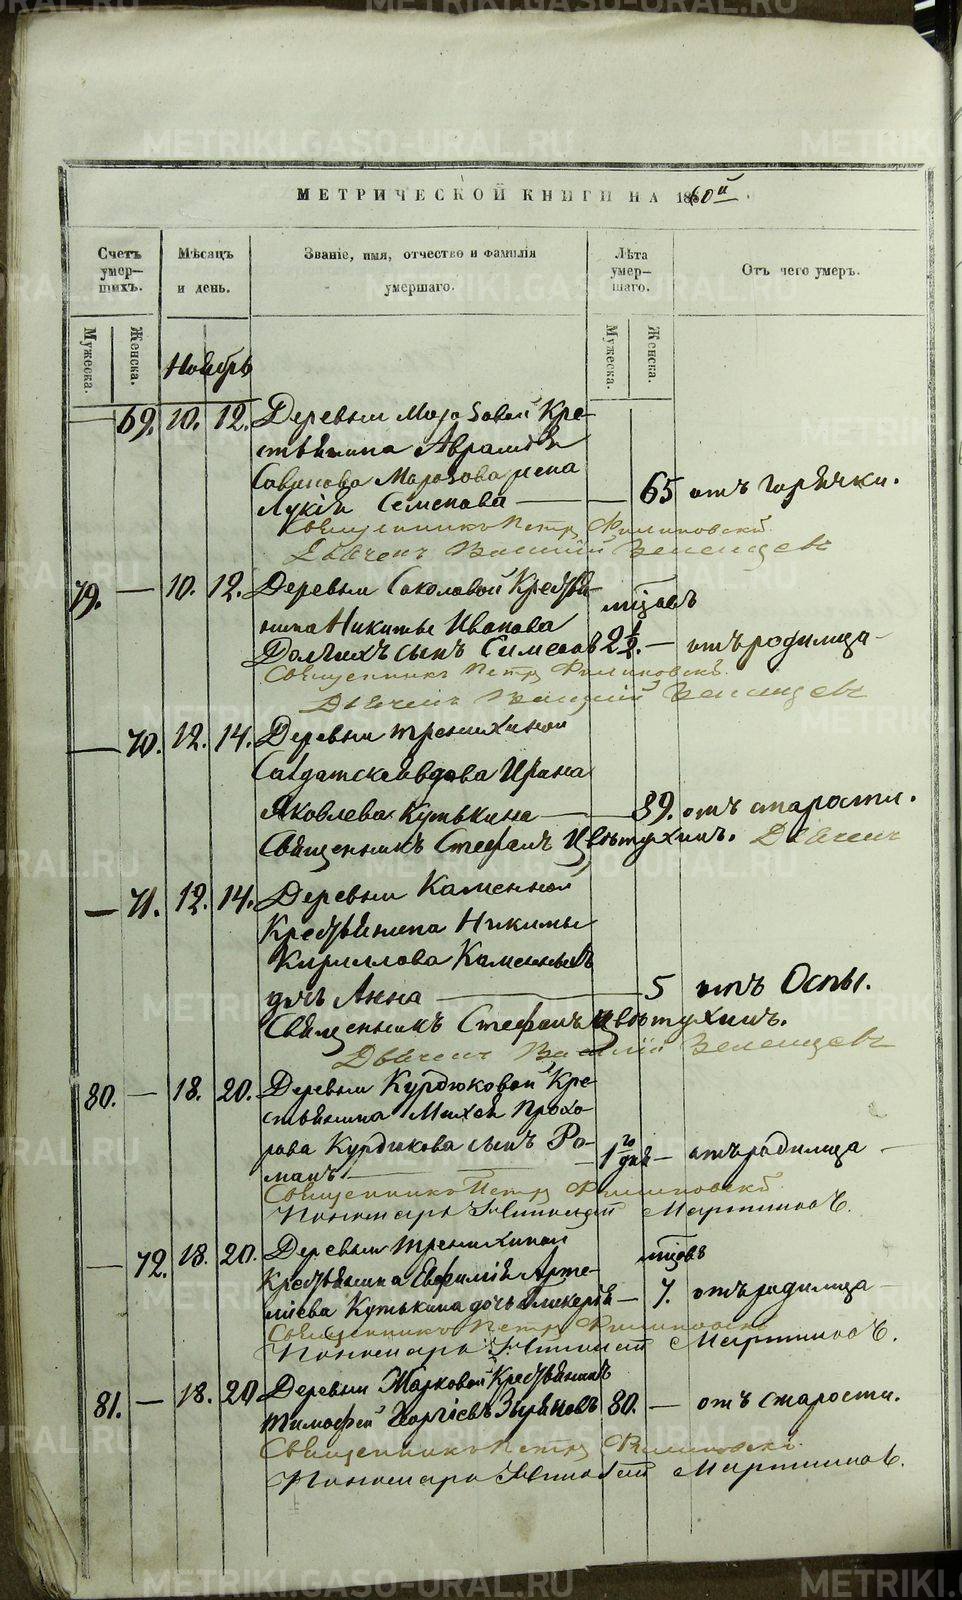 METRIKI.GASO-URAL.RU
МЕТРИЧЕСКОЙ КНИГИ НА 1860й
Счетъ умер-шихъ.
Мѣсяцъ и день.
Званіе, имя, отчество и фамилія умершаго.
Лѣта умер-шаго.
Отъ чего умеръ.
Мужеска.
Женска.
Мужеска.
Женска.
Ноябрь
69. 10. 12. Деревни Морозовой Кре-
стьянина Аврамія
Савинова Морозова жена
Лукія Семенова — 65 отъ горячки.
Священникъ Петръ Филиповскій
Дьячекъ Василій Зеленцевъ
79. — 10. 12. Деревни Соколовой Крестья-
нина Никиты Иванова мѣсяцовъ
Долгихъ сынъ Симеонъ 2 1/2. — отъ родимца
Священникъ Петръ Филиповскій
Дьячекъ Василій Зеленцевъ
— 70. 12. 14. Деревни Трепихиной
Салдатская вдова Ирина
Яковлева Кутькина — 89. отъ старости.
Священникъ Стефанъ Цвѣтухинъ. Дьячекъ
— 71. 12. 14. Деревни Каменной
Крестьянина Никиты
Кириллова Каменныхъ
дочь Анна — 5 отъ Оспы.
Священникъ Стефанъ Цвѣтухинъ.
Дьячекъ Василій Зеленцевъ
80. — 18. 20. Деревни Курдюковой Кре-
стьянина Михея Прохо-
рова Курдюкова сынъ Ро-
манъ — 1го дня — отъ родимца
Священникъ Петръ Филиповскій
Пономарь Мартиновъ.
— 72. 18. 20. Деревни Трепихиной мѣсяцовъ
Крестьянина Евфимія Арте-
міева Кутькина дочь Гликерія — 7. отъ родимца
Священникъ Петръ Филиповскій
Пономарь Мартиновъ.
81. — 18. 20 Деревни Жарковой Крестьянинъ
Тимофей Георгіевъ Зыряновъ 80. — отъ старости.
Священникъ Петръ Филиповскій.
Пономарь Мартиновъ.